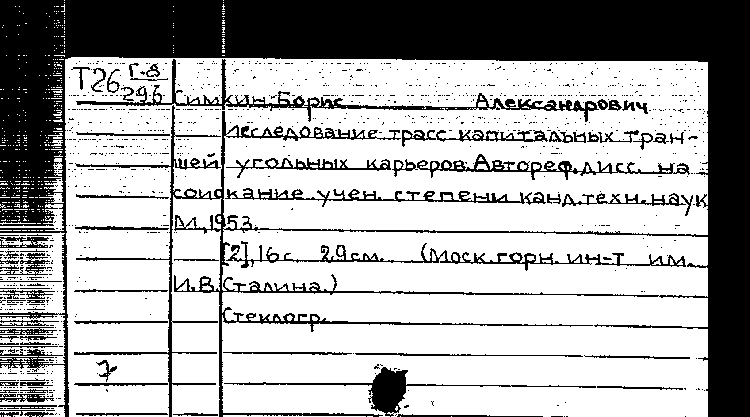 Т26 Г-8
296
Симкин, Борис Александрович
Исследование трасс капитальных тран-
шей угольных карьеров. Автореф. дисс. на
соискание учен. степени канд. техн. наук
М., 1953.
[2], 16 с. 29 см. (Моск. горн. ин-т им.
И.В. Сталина.)
Стеклогр.
7